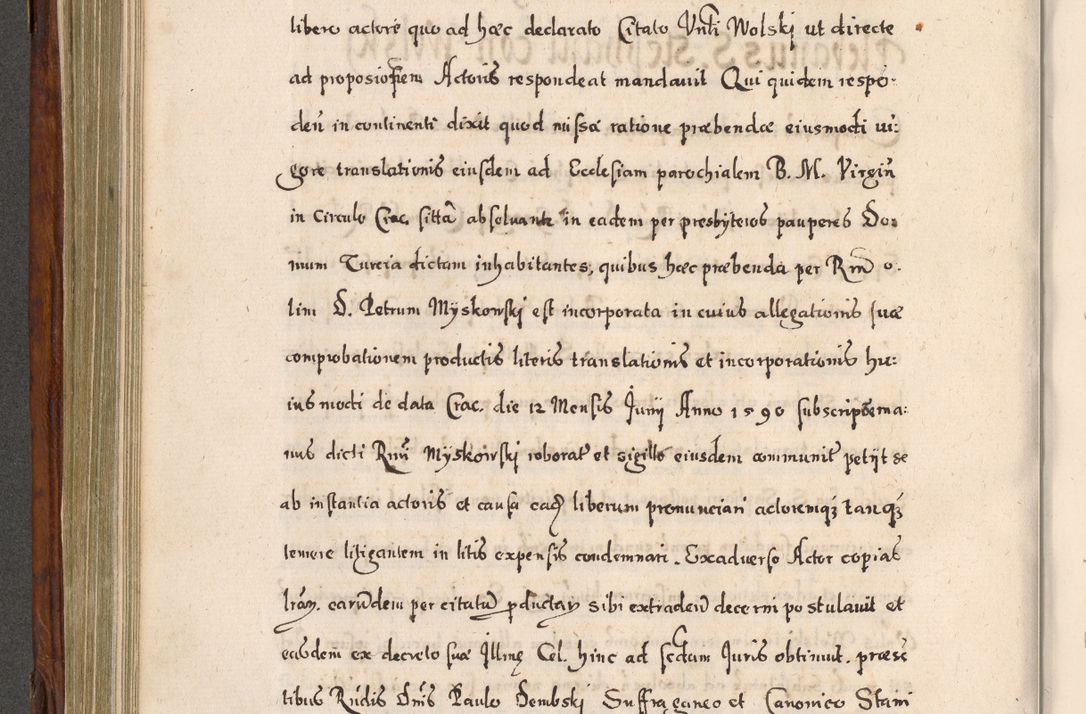 libero actore quo ad hæc declarato Citato Vnti Wolskj ut directe
ad proposiōem Actoris respondeat mandauit Qui quidem respō-
deñ in continenti dixit quod missæ ratione præbendæ eiusmodi ui:
gore translationis eiusdem ad Ecclesiam parochialem B. M. Virgiñ
in Circulo Crac. sittā absoluantr in eadem per presbyteros pauperes Do:
mum Turcia dictam inhabitantes, quibus hæc præbenda per Rm o-
lim D. Petrum Myskowskj est incorporata in cuius allegationis suæ
comprobationem productis literis translationis et incorporationis hu:
iusmodi de data Crac. die 12 Mensis Junij Anno 1590 subscriptōe ma:
nus dicti Rmi Myskowskj roborat et sigillo eiusdem communit petijt se
ab instantia actoris et causa eadē liberum pronunciari actoremq3 tanq3
temere litigantem in litis expensis condemnari. Exaduerso Actor copias
lrāɜ. earūdem per citatū pductaɜ sibi extradeñ decerni postulauit et
easdem ex decreto suæ Illmę Cel. hinc ad scdam Juris obtinuit. præsē
tibus Rndis Dnis Paulo Dembskj Suffraganeo et Canonico Stani